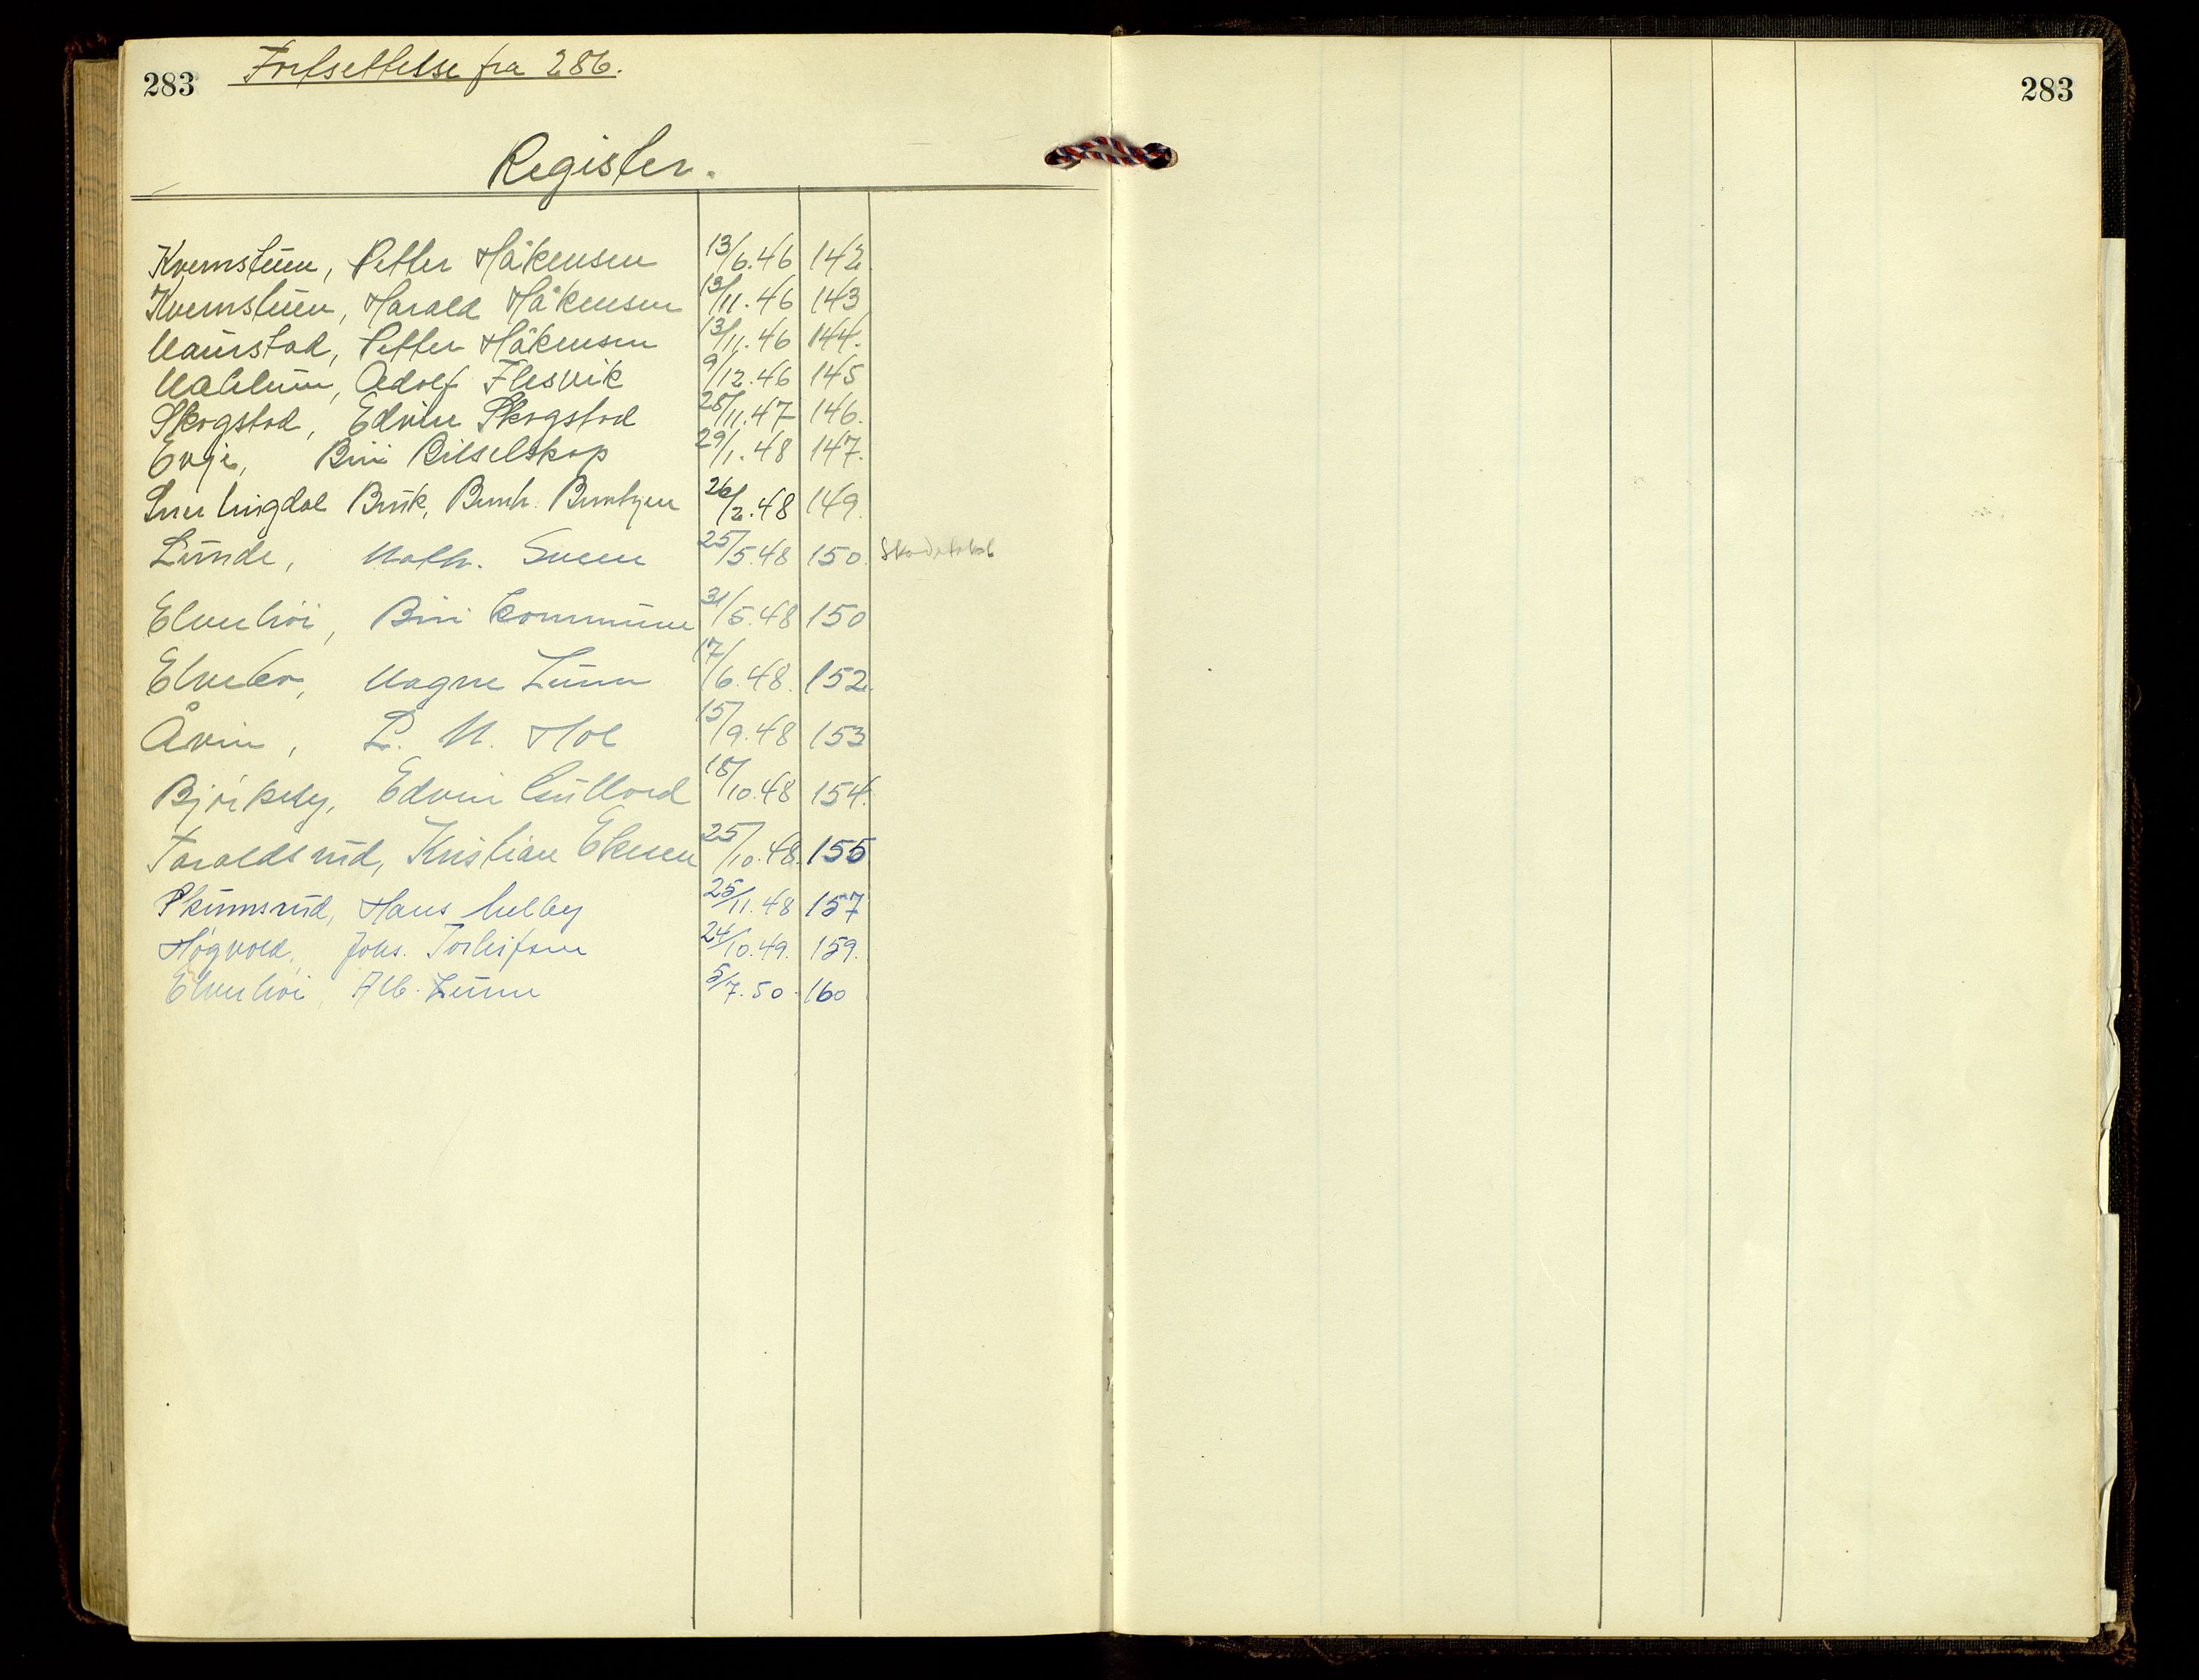 283 Fortsettelse fra 286. 283
Register.
Kvernstuen, Petter Håkensen 13/6.46 142.
Kvernstuen, Harald Håkensen 13/11.46 143
Maurstad, Petter Håkensen 13/11.46 144.
Adolf Flesvik 9/12.46 145
Skogstad, Edvin Skogstad 28/11.47 146.
Evje, Biri Bilselskap 29/1.48 147.
Snertingdal Bruk, 26/2.48 149.
Lunde, Math. Sveen 25/5.48 150. Skadetakst
Elverhöi, Biri kommune 31/5.48 150
Elvebo, Magne Lunn 17/6.48. 152.
Åvin, L. M. Hol 15/9.48 153
Björkeby, Edvin Gullord 18/10.48 154.
Taraldsrud, Kristian Ekeren 25/10.48. 155
Skumsrud, Hans Melby 25/11.48 157
Høgvold, Johs. Torleifsen 24/10.49. 159.
Elverhöi, Alb. Lunn 5/7.50. 160